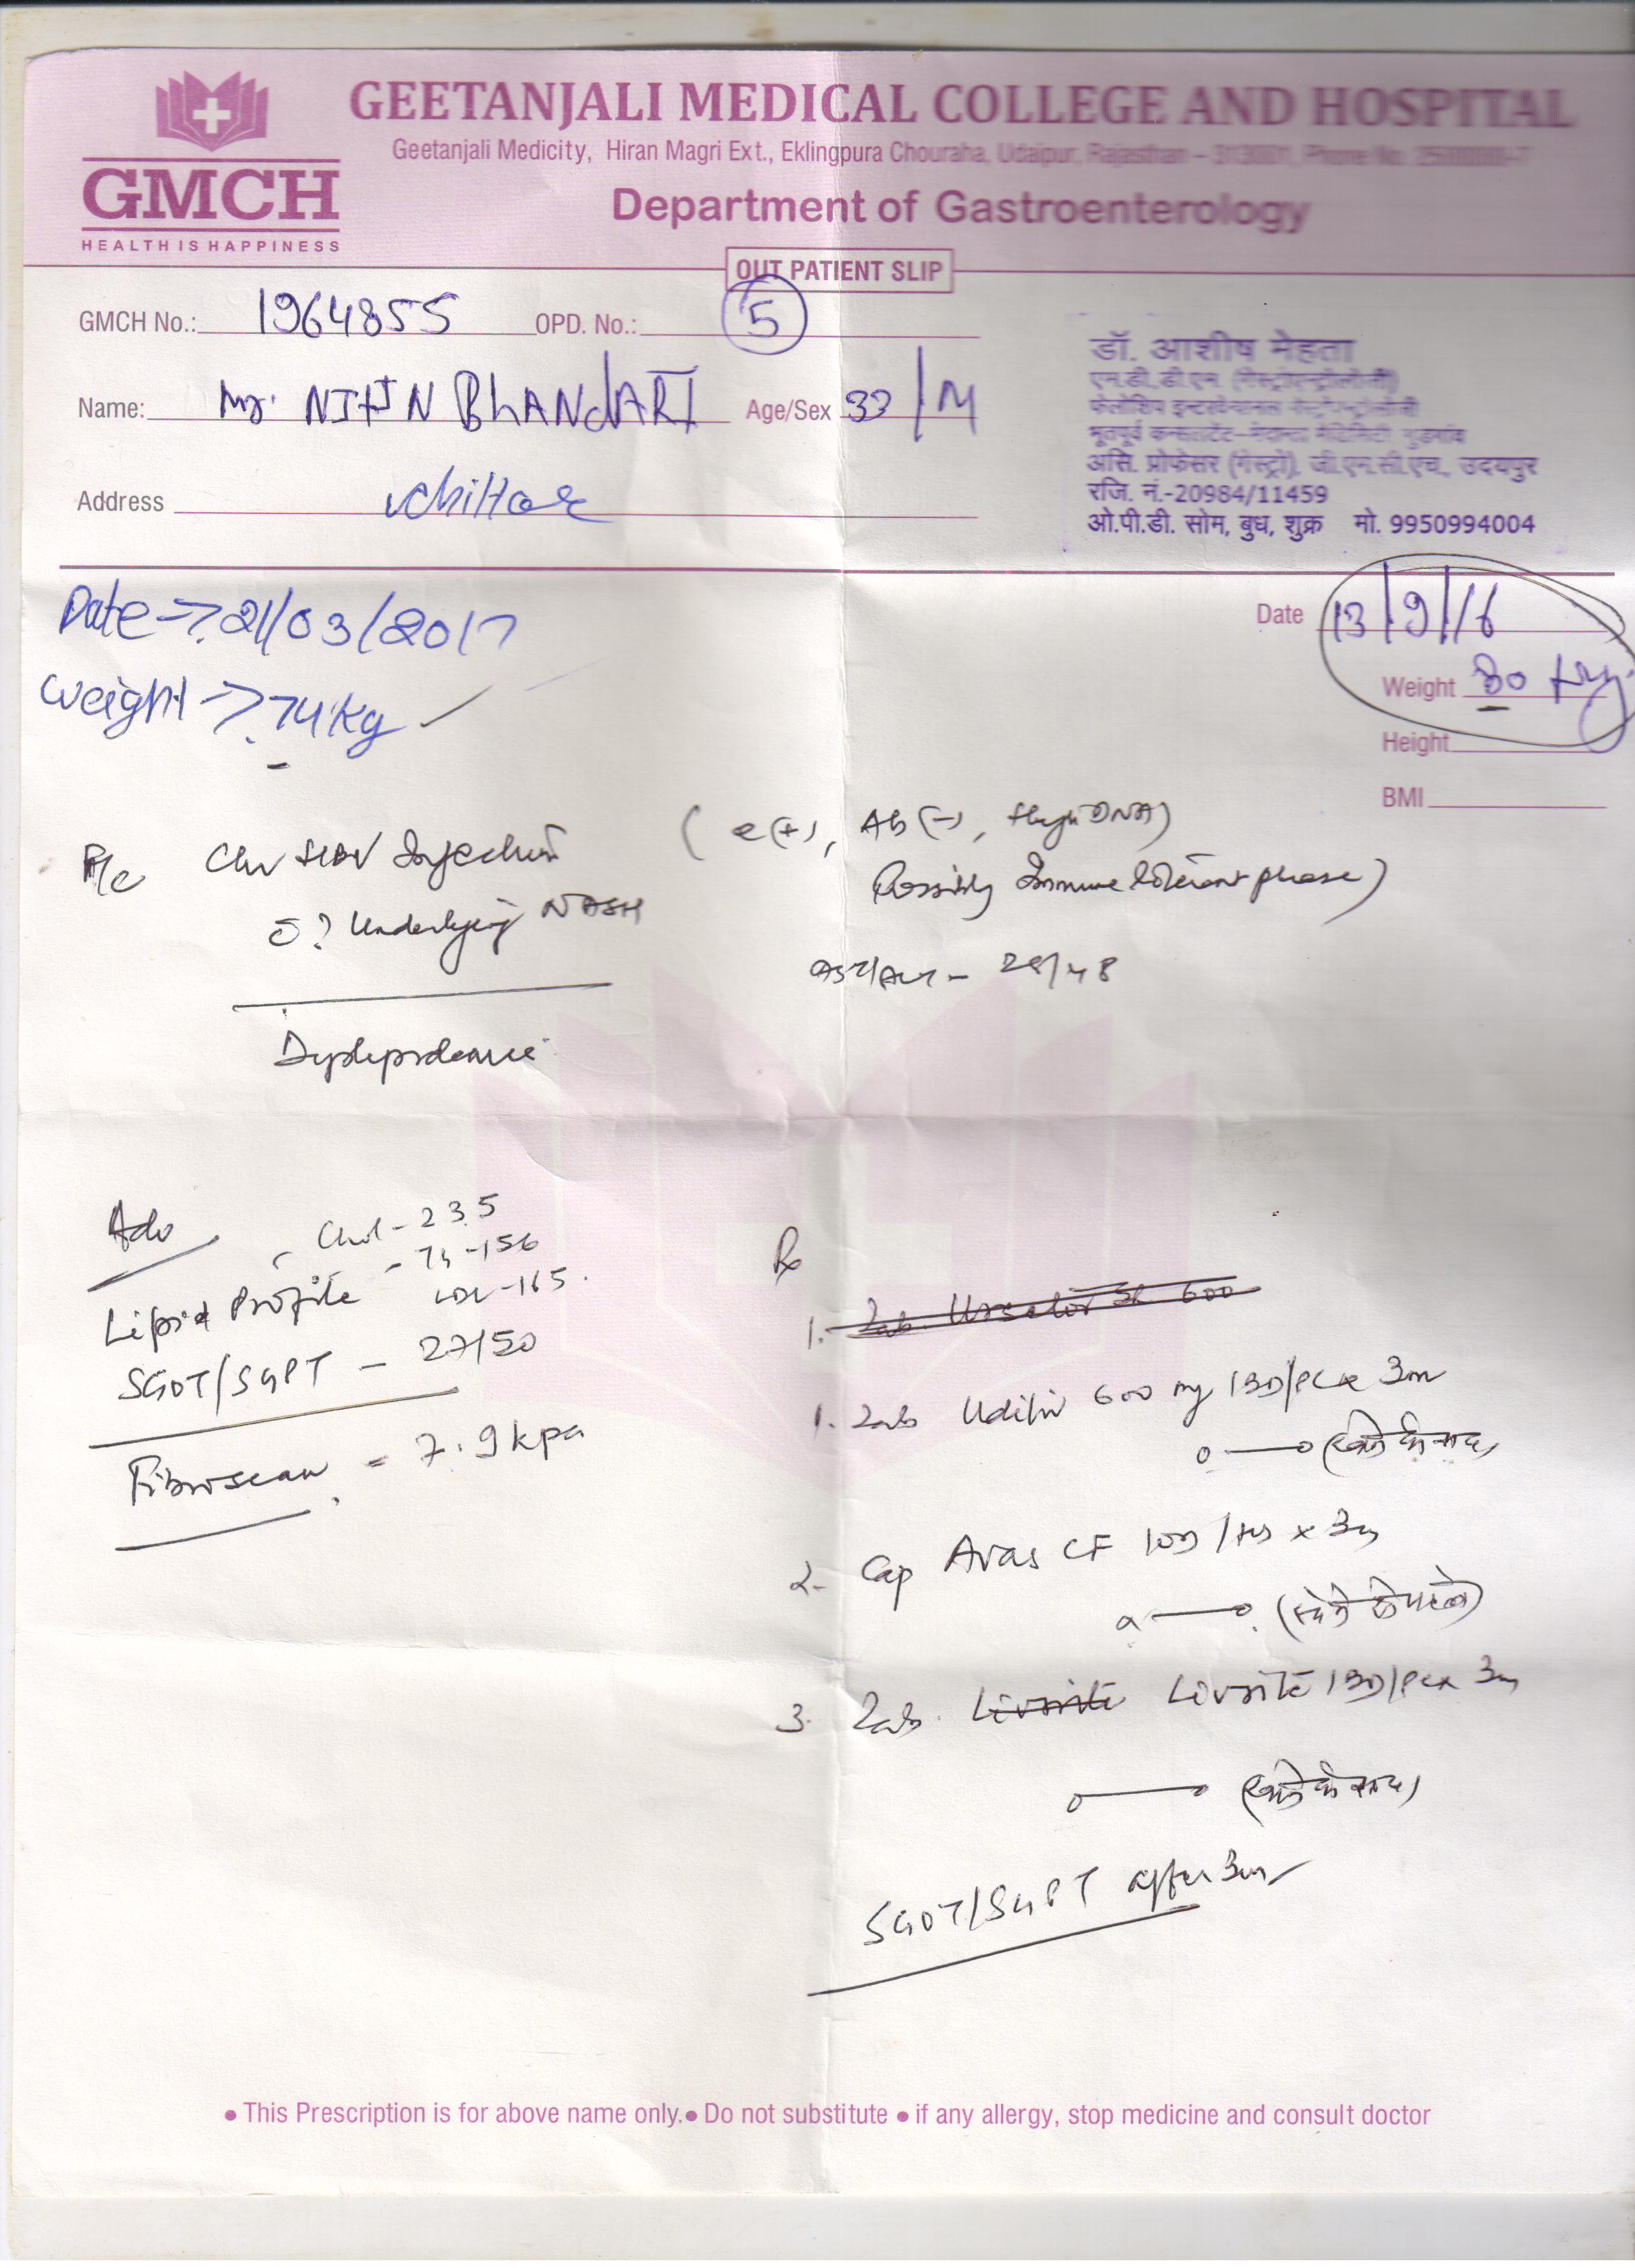 GEETANJALI MEDICAL COLLEGE AND HOSPITAL
Geetanjali Medicity, Hiran Magri Ext., Eklingpura Chouraha, Udaipur, Rajasthan
GMCH
HEALTH IS HAPPINESS
Department of Gastroenterology
OUT PATIENT SLIP
GMCH No.: 1964855 OPD. No.: 5
Name: Mr. NITIN BHANDARI Age/Sex 33/M
Address Chittor
डॉ. आशीष मेहता
एम.डी.डी.एम. (गेस्ट्रोएन्ट्रोलोजी)
असि. प्रोफेसर (गेस्ट्रो), जी.एम.सी.एच., उदयपुर
रजि. नं.-20984/11459
ओ.पी.डी. सोम, बुध, शुक्र मो. 9950994004
Date 13/9/16
Weight 80 kg
Height
BMI
Date → 21/03/2017
Weight → 74 Kg
Chr HBV Infection (e(+), Ab(-), High DNA)
Possibly Immune tolerant phase)
c̄ ? Underlying NASH
AST/ALT - 28/48
Dyslipidemia
Adv
Lipid Profile - Chol - 235
- TG - 156
LDL - 165.
SGOT/SGPT - 27/50
Fibroscan = 7.9 kpa
Rx
1. Tab. Ursetor SR 600
1. Tab Udiliv 600 mg 1 BD/PC x 3m
o—o (खाने के बाद)
2- Cap Avas CF 1 OD/HS x 3m
o—o (सोने से पहले)
3. Tab. Livrite Livrite 1 BD/PC x 3m
o—o (खाने के बाद)
SGOT/SGPT after 3m
• This Prescription is for above name only. • Do not substitute • if any allergy, stop medicine and consult doctor